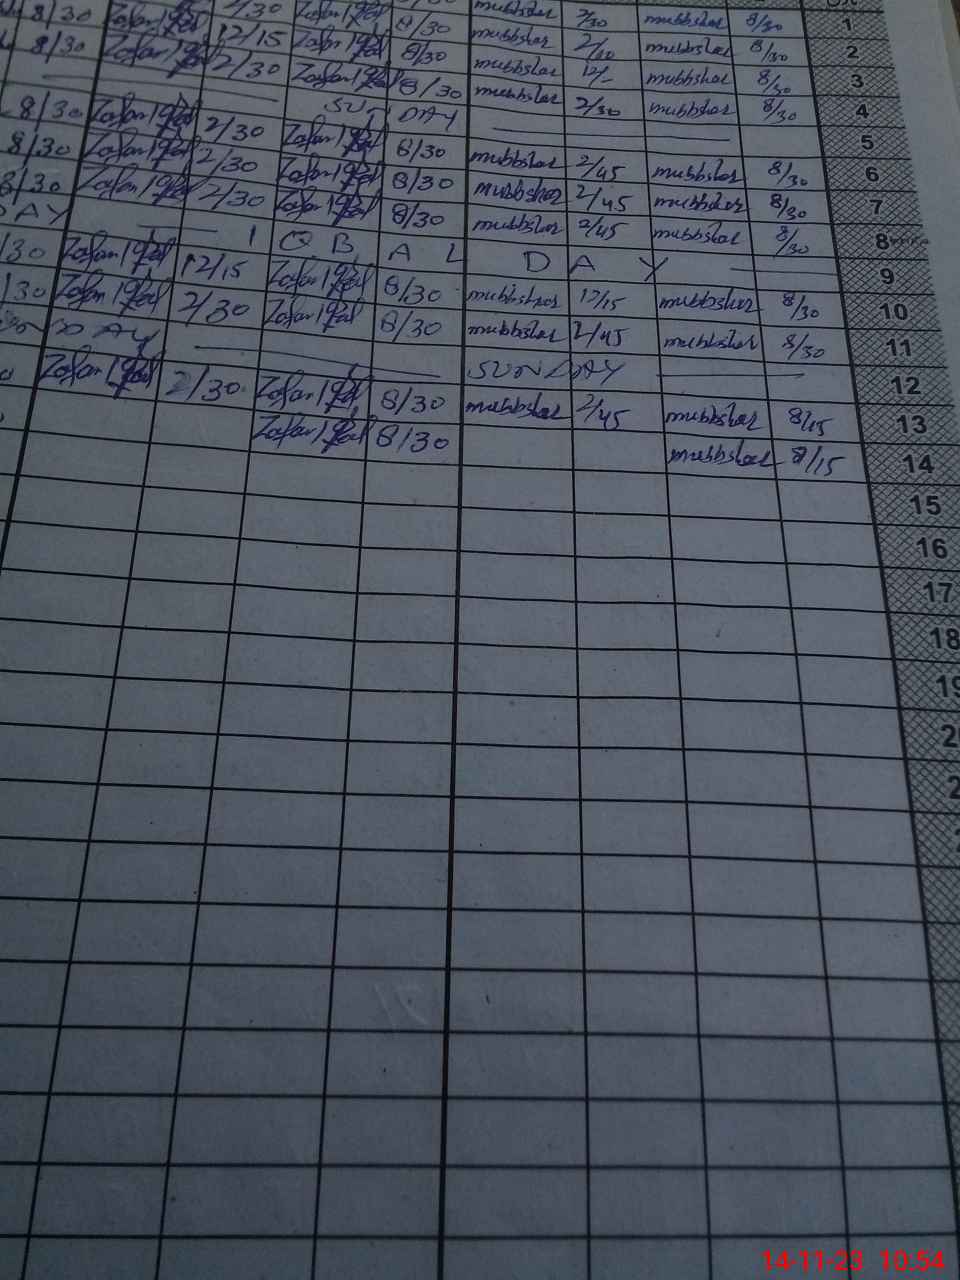 8/30 Zafar Iqbal 2/30 Zafar Iqbal 8/30 mubbshar 2/30 mubbshar 8/30 1
8/30 Zafar Iqbal 12/15 Zafar Iqbal 8/30 mubbshar mubbshar 8/30 2
2/30 Zafar Iqbal 8/30 mubbshar 12/- mubbshar 8/30 3
SUN DAY mubbshar 2/30 mubbshar 8/30 4
8/30 Zafar Iqbal 2/30 Zafar Iqbal 8/30 5
8/30 Zafar Iqbal 2/30 Zafar Iqbal 8/30 mubbshar 2/45 mubbshar 8/30 6
8/30 Zafar Iqbal 2/30 Zafar Iqbal 8/30 mubbsher 2/45 mubbsher 8/30 7
DAY mubbshar 2/45 mubbshar 8/30 8
I Q B A L D A Y 9
/30 Zafar Iqbal 12/15 Zafar Iqbal 8/30 mubbsher 12/15 mubbsher 8/30 10
/30 Zafar Iqbal 2/30 Zafar Iqbal 8/30 mubbshar 2/45 mubbshar 8/30 11
DAY SUNDAY 12
Zafar Iqbal 2/30 Zafar Iqbal 8/30 mubbshar 2/45 mubbshar 8/15 13
Zafar Iqbal 8/30 mubbshar 8/15 14
15
16
17
18
19
14-11-23 10.54